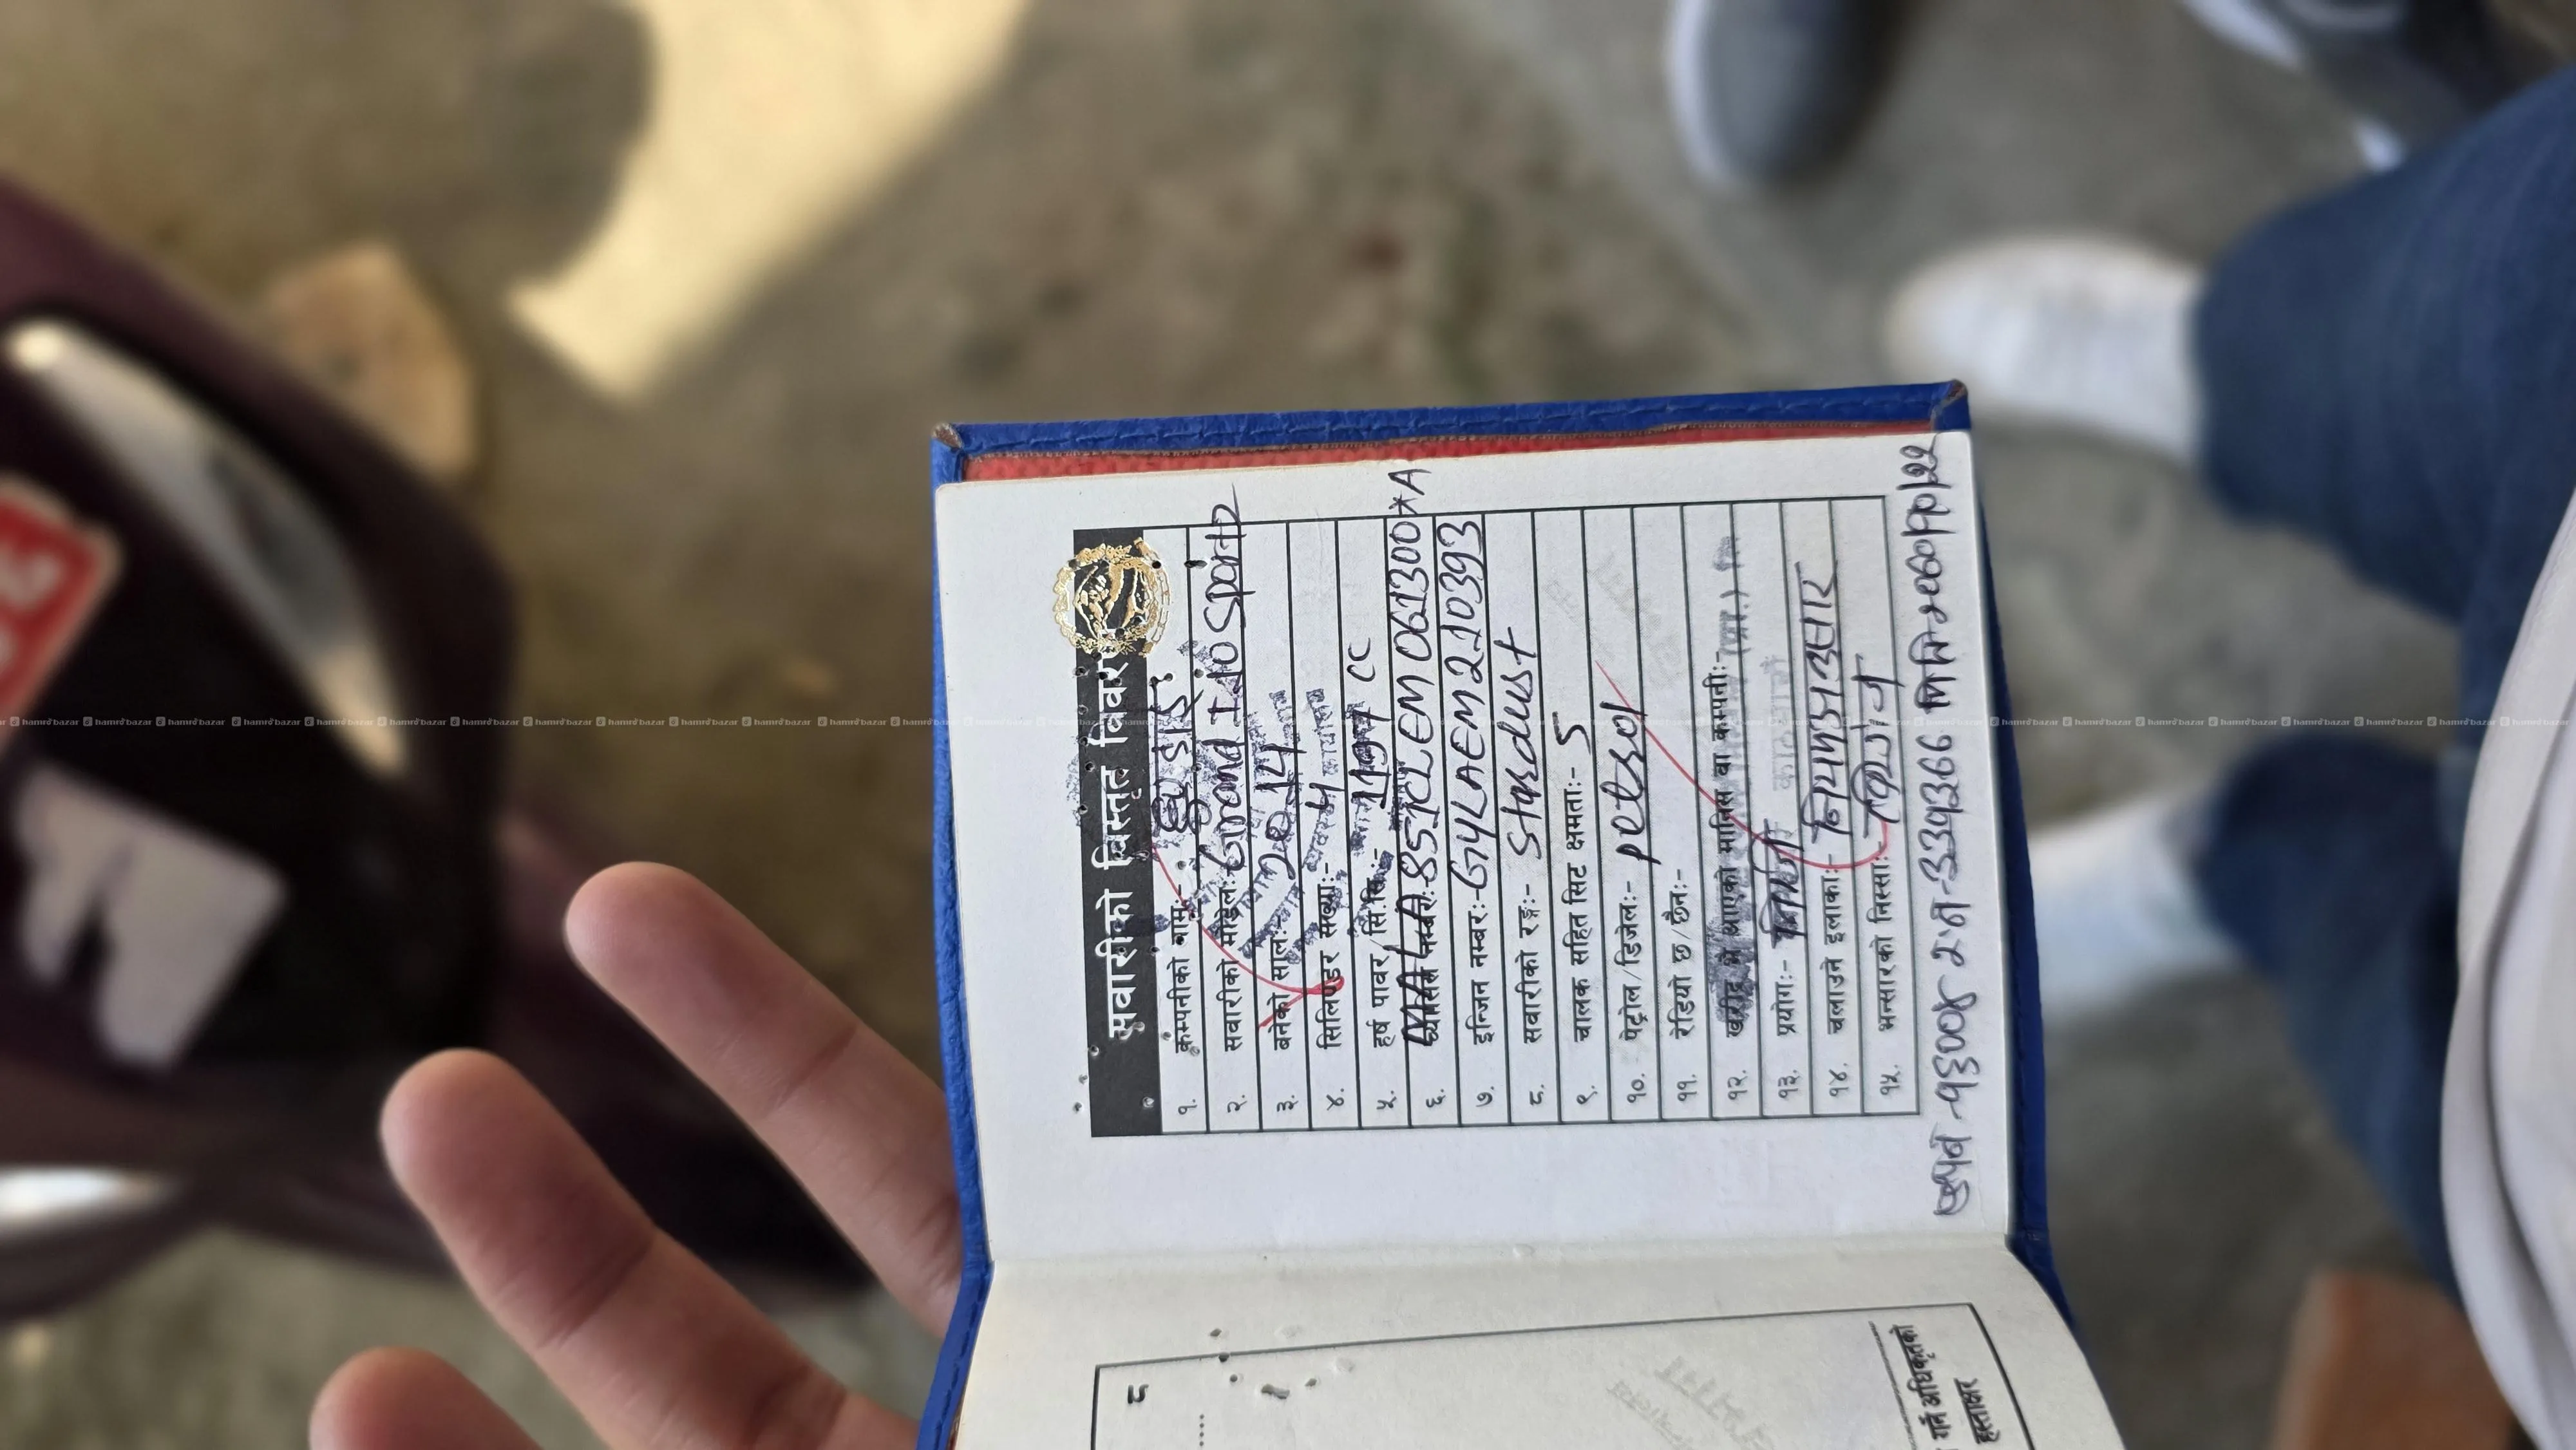 सवारीको विस्तृत विवरण
१. कम्पनीको नाम:- हुण्डाई
२. सवारीको मोडेल:- Grand I-10 Sportz
३. बनेको साल:- 2014
४. सिलिण्डर संख्या:- 4
५. हर्ष पावर/सि.सि.:- 1197 CC
६. च्यासिस नम्बर:- MALA851CLEM061300*A
७. इन्जिन नम्बर:- G4LAEM210393
८. सवारीको रङ्ग:- Stardust
९. चालक सहित सिट क्षमता:- 5
१०. पेट्रोल/डिजेल:- petrol
११. रेडियो छ/छैन:-
१२. खरीद गरी आएको मानिस वा कम्पनी:-
१३. प्रयोग:- निजी
१४. चलाउने इलाका:- नियमअनुसार
१५. भन्सारको निस्सा:-
प्रपन १६००४ र.नं. ३३५२६६ मिति २०७०।१०।२२
८
गर्ने अधिकृतको
हस्ताक्षर
hamrobazar